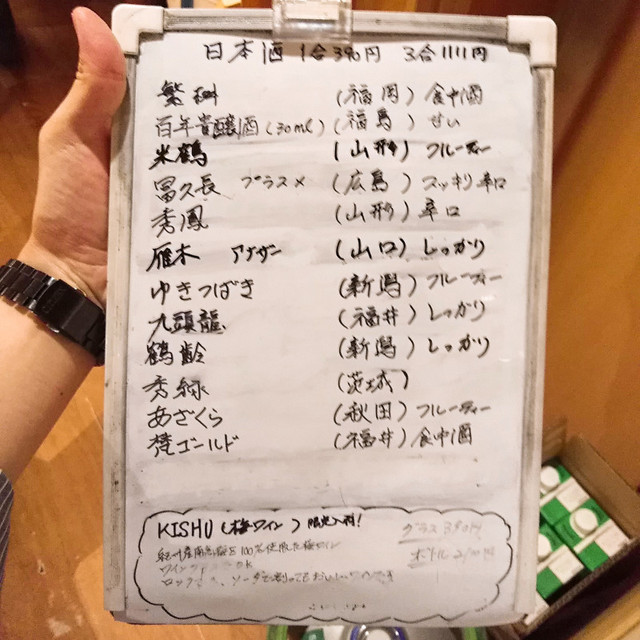 日本酒 1合390円 3合1111円
繁桝 (福岡) 食中酒
百年貴醸酒(30ml) (福島) 甘い
米鶴 (山形) フルーティー
富久長 プラスメ (広島) スッキリ辛口
秀鳳 (山形) 辛口
雁木 アナザー (山口) しっかり
ゆきつばき (新潟) フルーティー
九頭龍 (福井) しっかり
鶴齢 (新潟) しっかり
秀緑 (茨城)
あざくら (秋田) フルーティー
梵ゴールド (福井) 食中酒
KISHU (梅ワイン) 限定入荷! グラス 390円
100%使用した梅ワイン ボトル
ロック ソーダで割っても